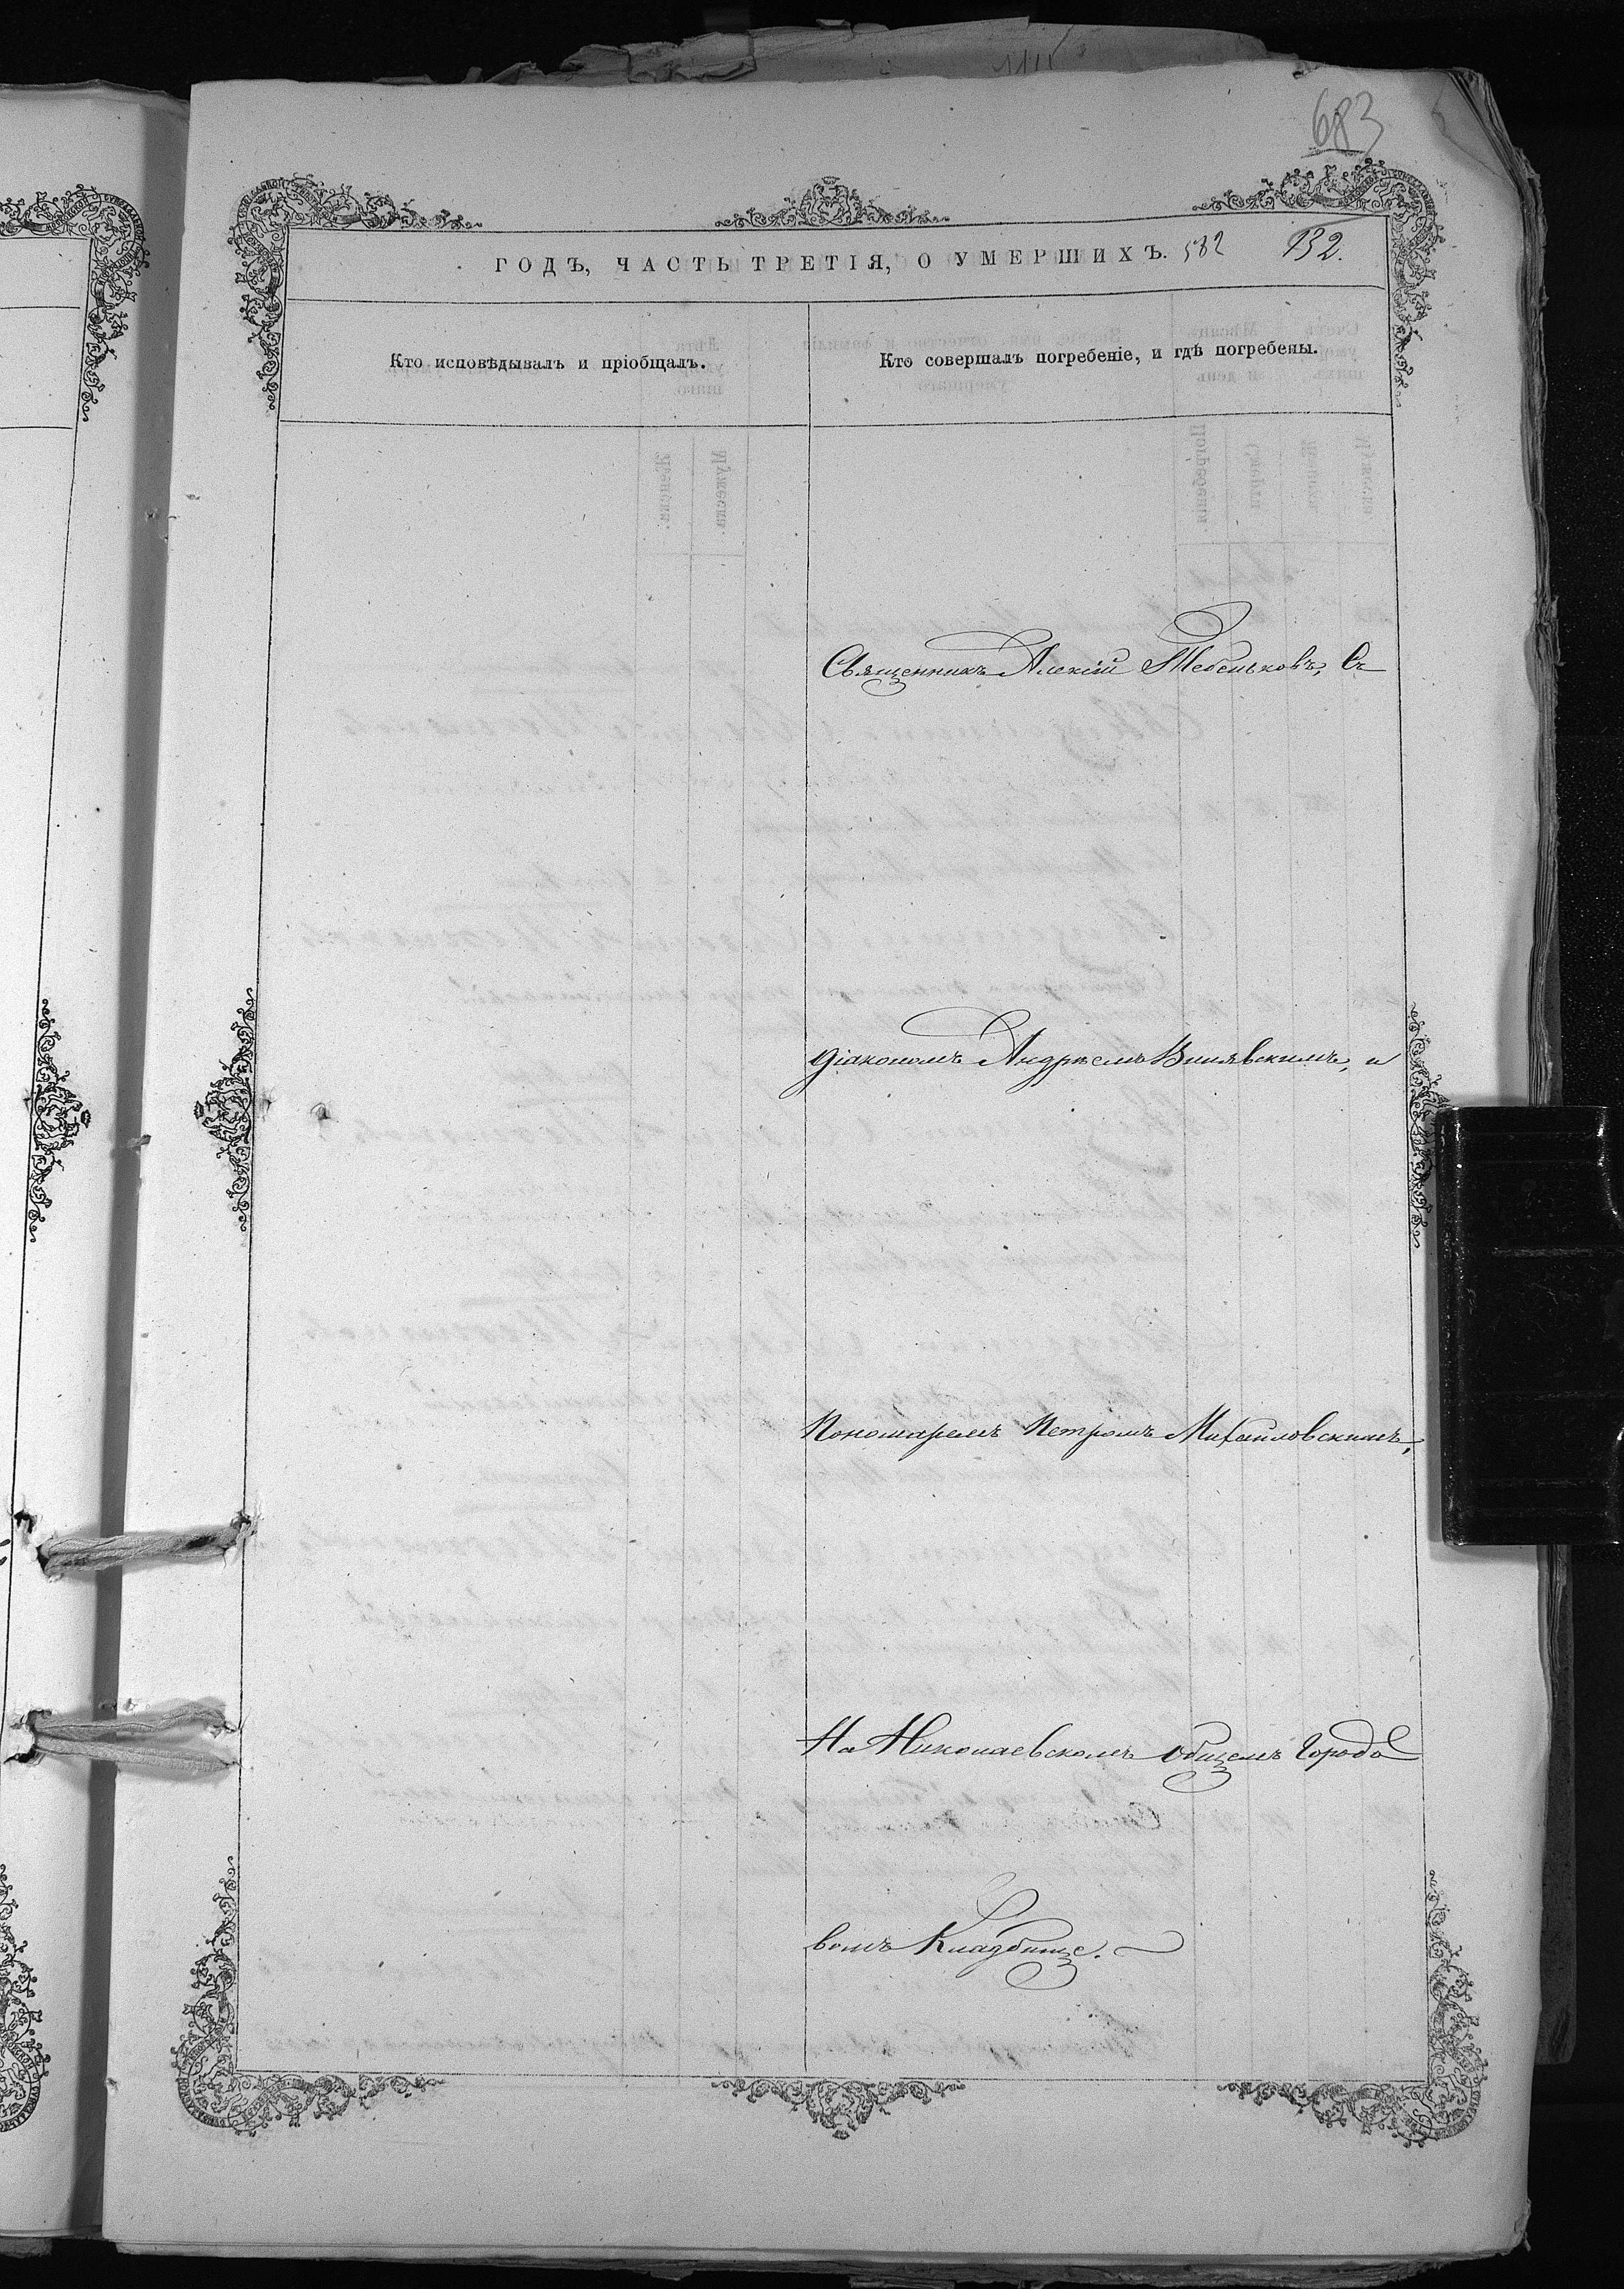 683
ГОДЪ, ЧАСТЬ ТРЕТІЯ, О УМЕРШИХЪ. 582 132.
Кто исповѣдывалъ и пріобщалъ.
Кто совершалъ погребеніе, и гдѣ погребены.
Священникъ Алексій Тебеньковъ, съ
діакономъ Андреемъ и
Пономаремъ Петромъ Михайловскимъ,
На Николаевскомъ общемъ Городо
вомъ Кладбище.